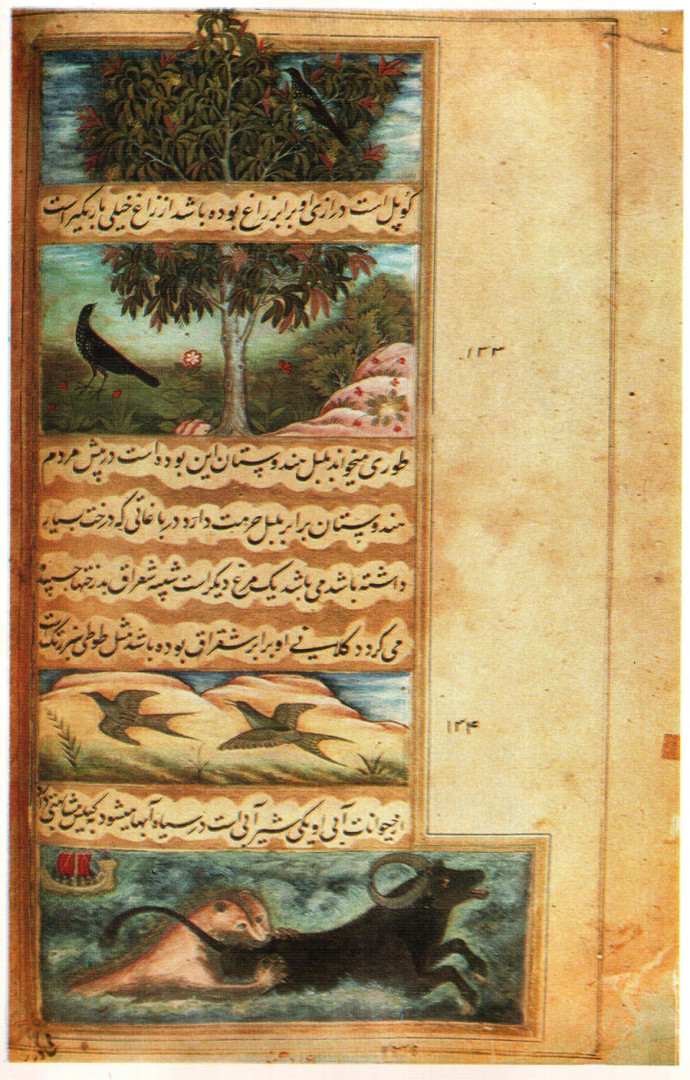 کوپل است درازی او برابر زاغ بوده باشد از زاغ خیلی باریکتر است
۱۳۳
طوری میخواند بلبل هندوستان این بوده است در پیش مردم
هندوستان برابر بلبل حرمت دارد در باغاتی که درخت بسیار
داشته باشد می باشد یک مرغ دیگر است شبیه شقراق بدرختها چسپیده
می گردد کلانی او برابر شقراق بوده باشد مثل طوطی سبز رنگ است
۱۳۴
از حیوانات آبی او یکی شیر آبی است در سیاه آبها میشود به کیلس مشابهتی دارد